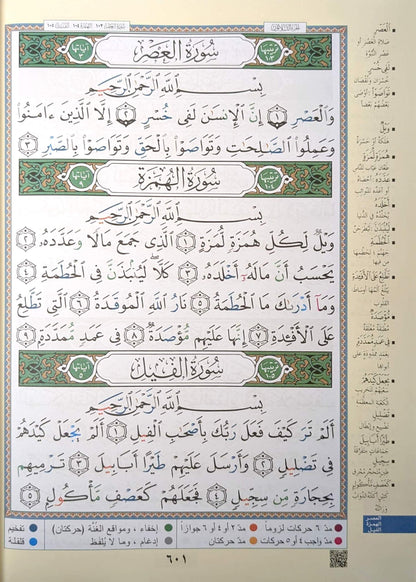 سُورَةُ العَصْرِ
ترتيبها ١٠٣
آياتها ٣
بِسْمِ ٱللَّهِ ٱلرَّحْمَٰنِ ٱلرَّحِيمِ
وَٱلْعَصْرِ ١ إِنَّ ٱلْإِنسَٰنَ لَفِى خُسْرٍ ٢ إِلَّا ٱلَّذِينَ ءَامَنُوا۟
وَعَمِلُوا۟ ٱلصَّٰلِحَٰتِ وَتَوَاصَوْا۟ بِٱلْحَقِّ وَتَوَاصَوْا۟ بِٱلصَّبْرِ ٣
سُورَةُ الهُمَزَةِ
ترتيبها ١٠٤
آياتها ٩
بِسْمِ ٱللَّهِ ٱلرَّحْمَٰنِ ٱلرَّحِيمِ
وَيْلٌ لِّكُلِّ هُمَزَةٍ لُّمَزَةٍ ١ ٱلَّذِى جَمَعَ مَالًا وَعَدَّدَهُۥ ٢
يَحْسَبُ أَنَّ مَالَهُۥٓ أَخْلَدَهُۥ ٣ كَلَّا ۖ لَيُنۢبَذَنَّ فِى ٱلْحُطَمَةِ ٤
وَمَآ أَدْرَىٰكَ مَا ٱلْحُطَمَةُ ٥ نَارُ ٱللَّهِ ٱلْمُوقَدَةُ ٦ ٱلَّتِى تَطَّلِعُ
عَلَى ٱلْأَفْـِٔدَةِ ٧ إِنَّهَا عَلَيْهِم مُّؤْصَدَةٌ ٨ فِى عَمَدٍ مُّمَدَّدَةٍۭ ٩
سُورَةُ الفِيلِ
ترتيبها ١٠٥
آياتها ٥
بِسْمِ ٱللَّهِ ٱلرَّحْمَٰنِ ٱلرَّحِيمِ
أَلَمْ تَرَ كَيْفَ فَعَلَ رَبُّكَ بِأَصْحَٰبِ ٱلْفِيلِ ١ أَلَمْ يَجْعَلْ كَيْدَهُمْ
فِى تَضْلِيلٍ ٢ وَأَرْسَلَ عَلَيْهِمْ طَيْرًا أَبَابِيلَ ٣ تَرْمِيهِم
بِحِجَارَةٍ مِّن سِجِّيلٍ ٤ فَجَعَلَهُمْ كَعَصْفٍ مَّأْكُولٍۭ ٥
مدّ ٦ حركات لزوماً مدّ ٢ أو ٤ أو ٦ جوازاً إخفاء، ومواقع الغنّة (حركتان) تفخيم
مدّ واجب ٤ أو ٥ حركات مدّ حركتان إدغام، وما لا يُلفظ قلقلة
٦٠١
العَصْرِ
لَفِي خُسْرٍ
خسران ونقصان
تَوَاصَوْا
وَيْلٌ
هُمَزَةٍ لُمَزَةٍ
عَدَّدَهُ
أَخْلَدَهُ
لَيُنْبَذَنَّ
الحُطَمَةِ
تَطَّلِعُ عَلَى الأَفْئِدَةِ
مُؤْصَدَةٌ
فِي عَمَدٍ مُمَدَّدَةٍ
يَجْعَلْ كَيْدَهُمْ
تَضْلِيلٍ
طَيْرًا أَبَابِيلَ
سِجِّيلٍ
كَعَصْفٍ مَأْكُولٍ
العصر
الهمزة
الفيل